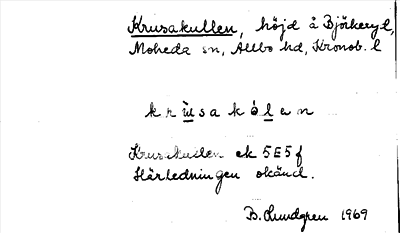 Krusakullen, höjd å Björkeryd,
Moheda sn, Allbo hd, Kronob. l
krùsakólen
Krusakullen ek 5E5f
Härledningen okänd.
B. Lundgren 1969